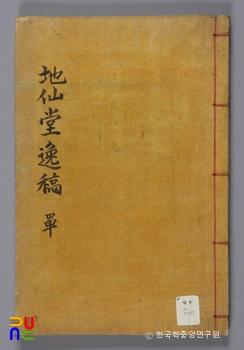 地仙堂逸稿 單
© 한국학중앙연구원